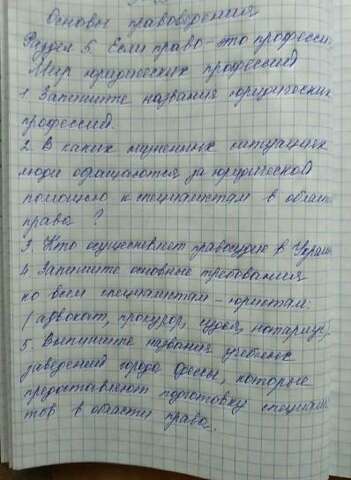 Основы правоведения
Раздел 5. Если право - это професси
Мир юридических профессий
1 Запишите названия юридических
профессий.
2. В каких жизненных ситуациях
люди обращаются за юридической
помощью к специалистам в облас
права ?
3 Кто осуществляет правосудие в Украин
4 Запишите основные требования
ко всем специалистам - юристам:
(адвокат, прокурор, судья, нотариус,
5. Выпишите названия учебных
заведений города Одессы, которые
предоставляют подготовку специалис
тов в области права.